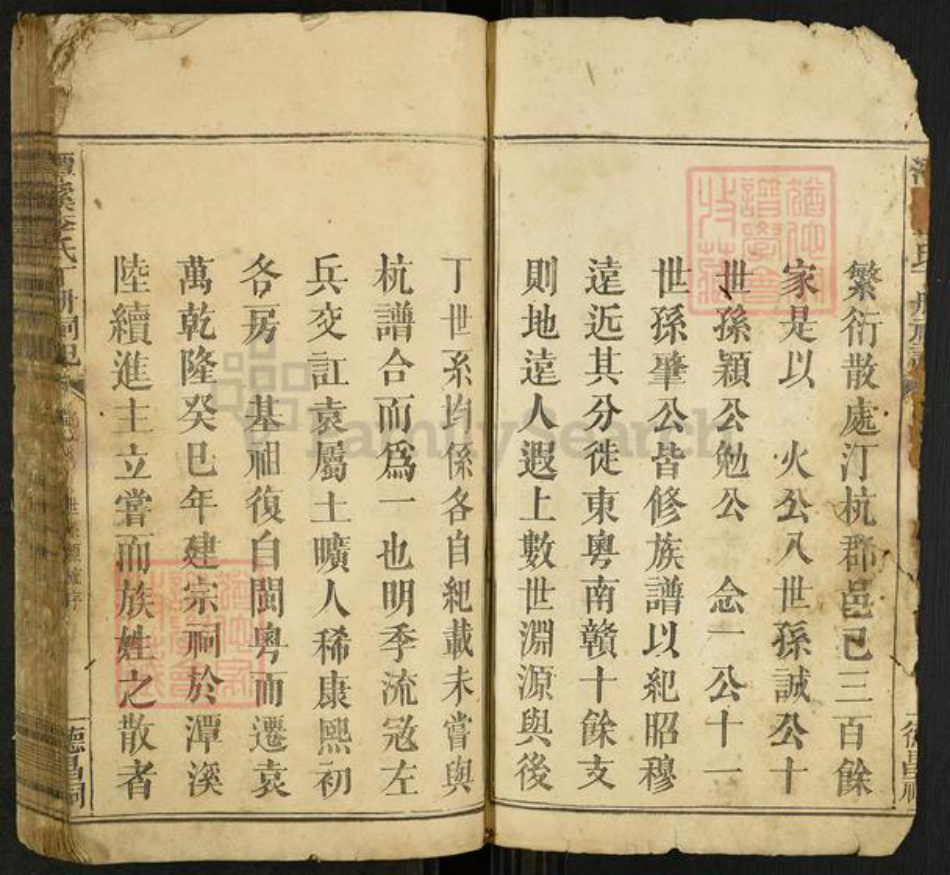 繁衍散處汀杭郡邑已三百餘
家是以 火公八世孫誠公十
世孫穎公勉公 念一公十一
世孫肇公皆修族譜以紀昭穆
遠近其分徙東粵南贛十餘支
則地遠人遐上數世淵源與後
丁世系均係各自紀載未嘗與
杭譜合而為一也明季流宼左
兵交訌袁屬土曠人稀康熙初
各房 基祖復自閩粵而遷袁
萬乾隆癸巳年建宗祠於潭溪
陸續進主立嘗而族姓之散者
潭溪李氏丁冊祠記
德昌祠
FamilySearch